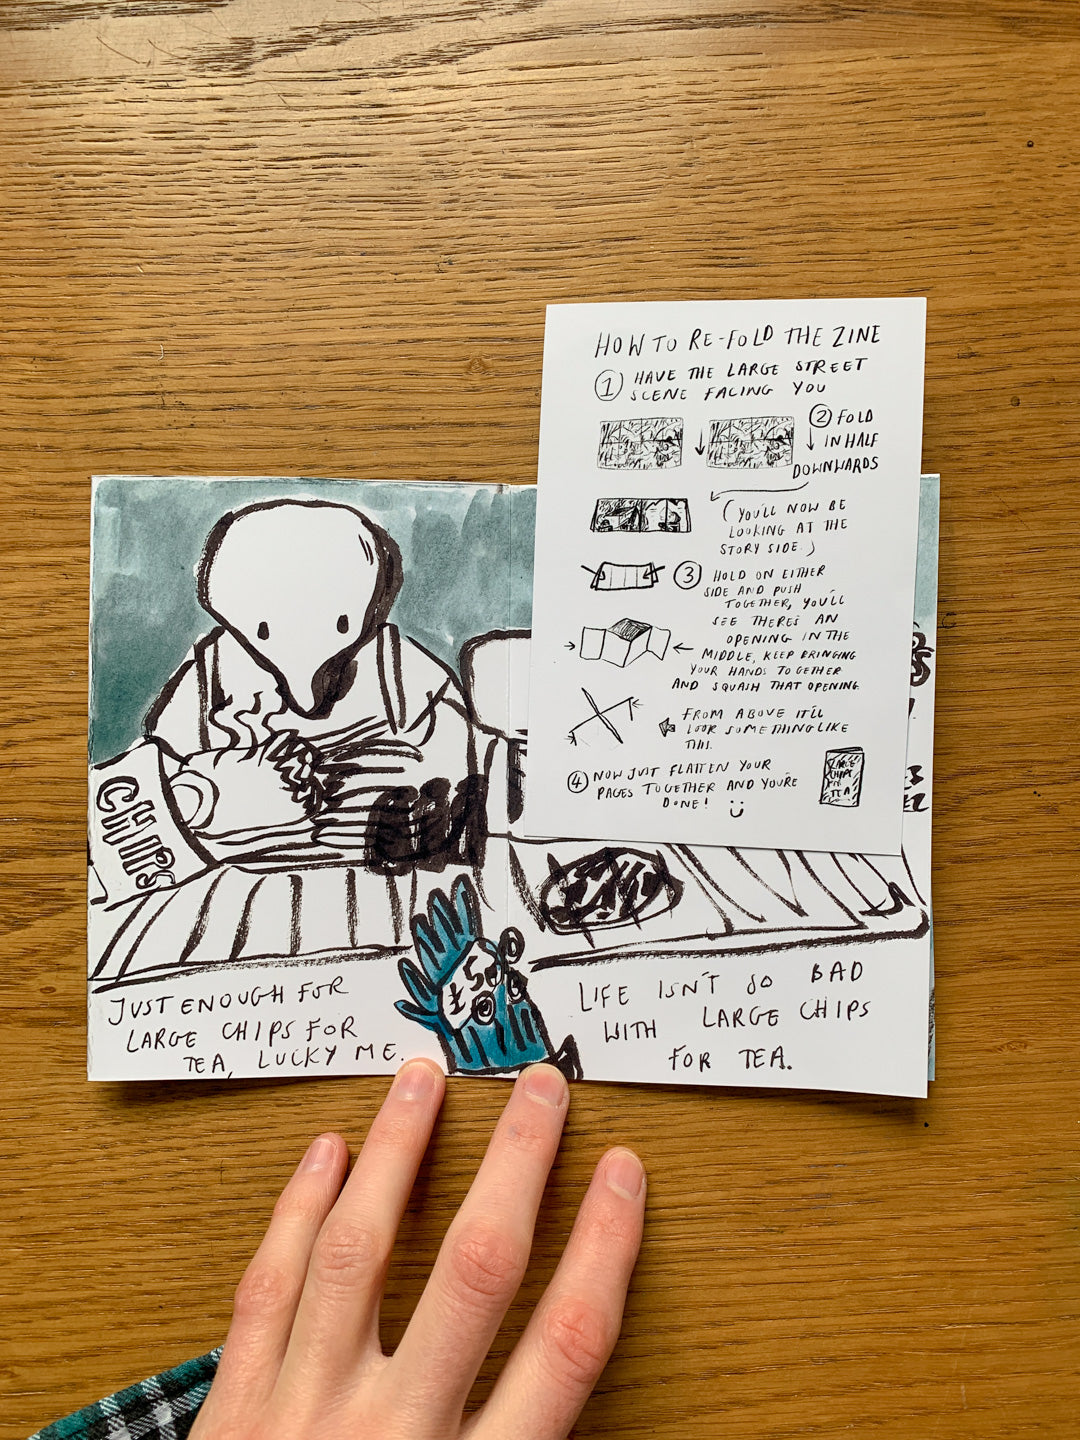 HOW TO RE-FOLD THE ZINE
1 HAVE THE LARGE STREET
SCENE FACING YOU
2 FOLD
IN HALF
DOWNWARDS
(YOU'LL NOW BE
LOOKING AT THE
STORY SIDE.)
3 HOLD ON EITHER
SIDE AND PUSH
TOGETHER, YOU'LL
SEE THERE'S AN
OPENING IN THE
MIDDLE, KEEP BRINGING
YOUR HANDS TOGETHER
AND SQUASH THAT OPENING.
FROM ABOVE IT'LL
LOOK SOMETHING LIKE
THIS.
4 NOW JUST FLATTEN YOUR
PAGES TOGETHER AND YOU'RE
DONE!
LARGE
CHIPS
TEA
CHIPS
£5
JUST ENOUGH FOR
LARGE CHIPS FOR
TEA, LUCKY ME.
LIFE ISN'T SO BAD
WITH LARGE CHIPS
FOR TEA.